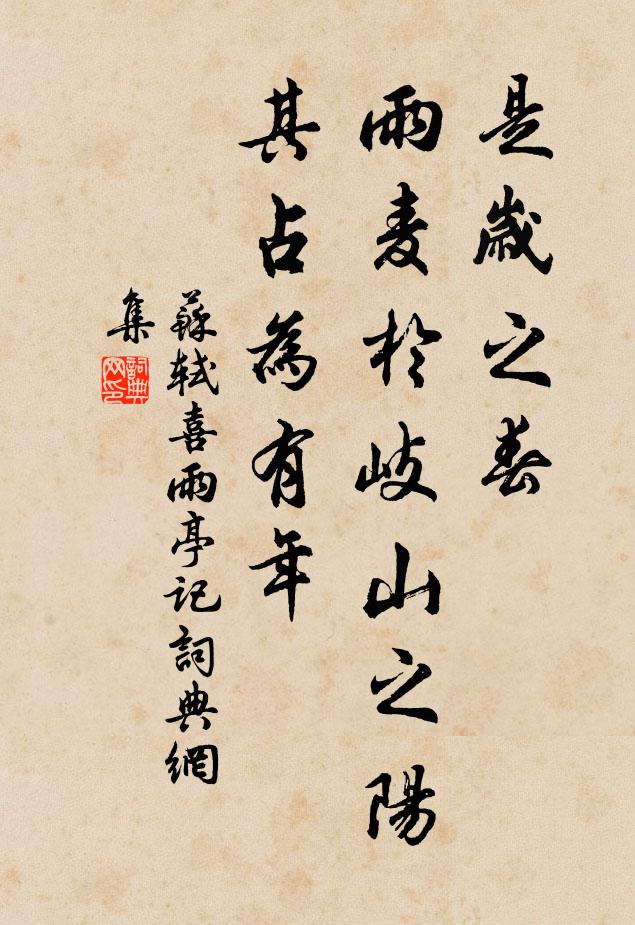 是歲之春
雨麦於岐山之陽
其占為有年
蘇軾喜雨亭記詞典網
集
詞典网印